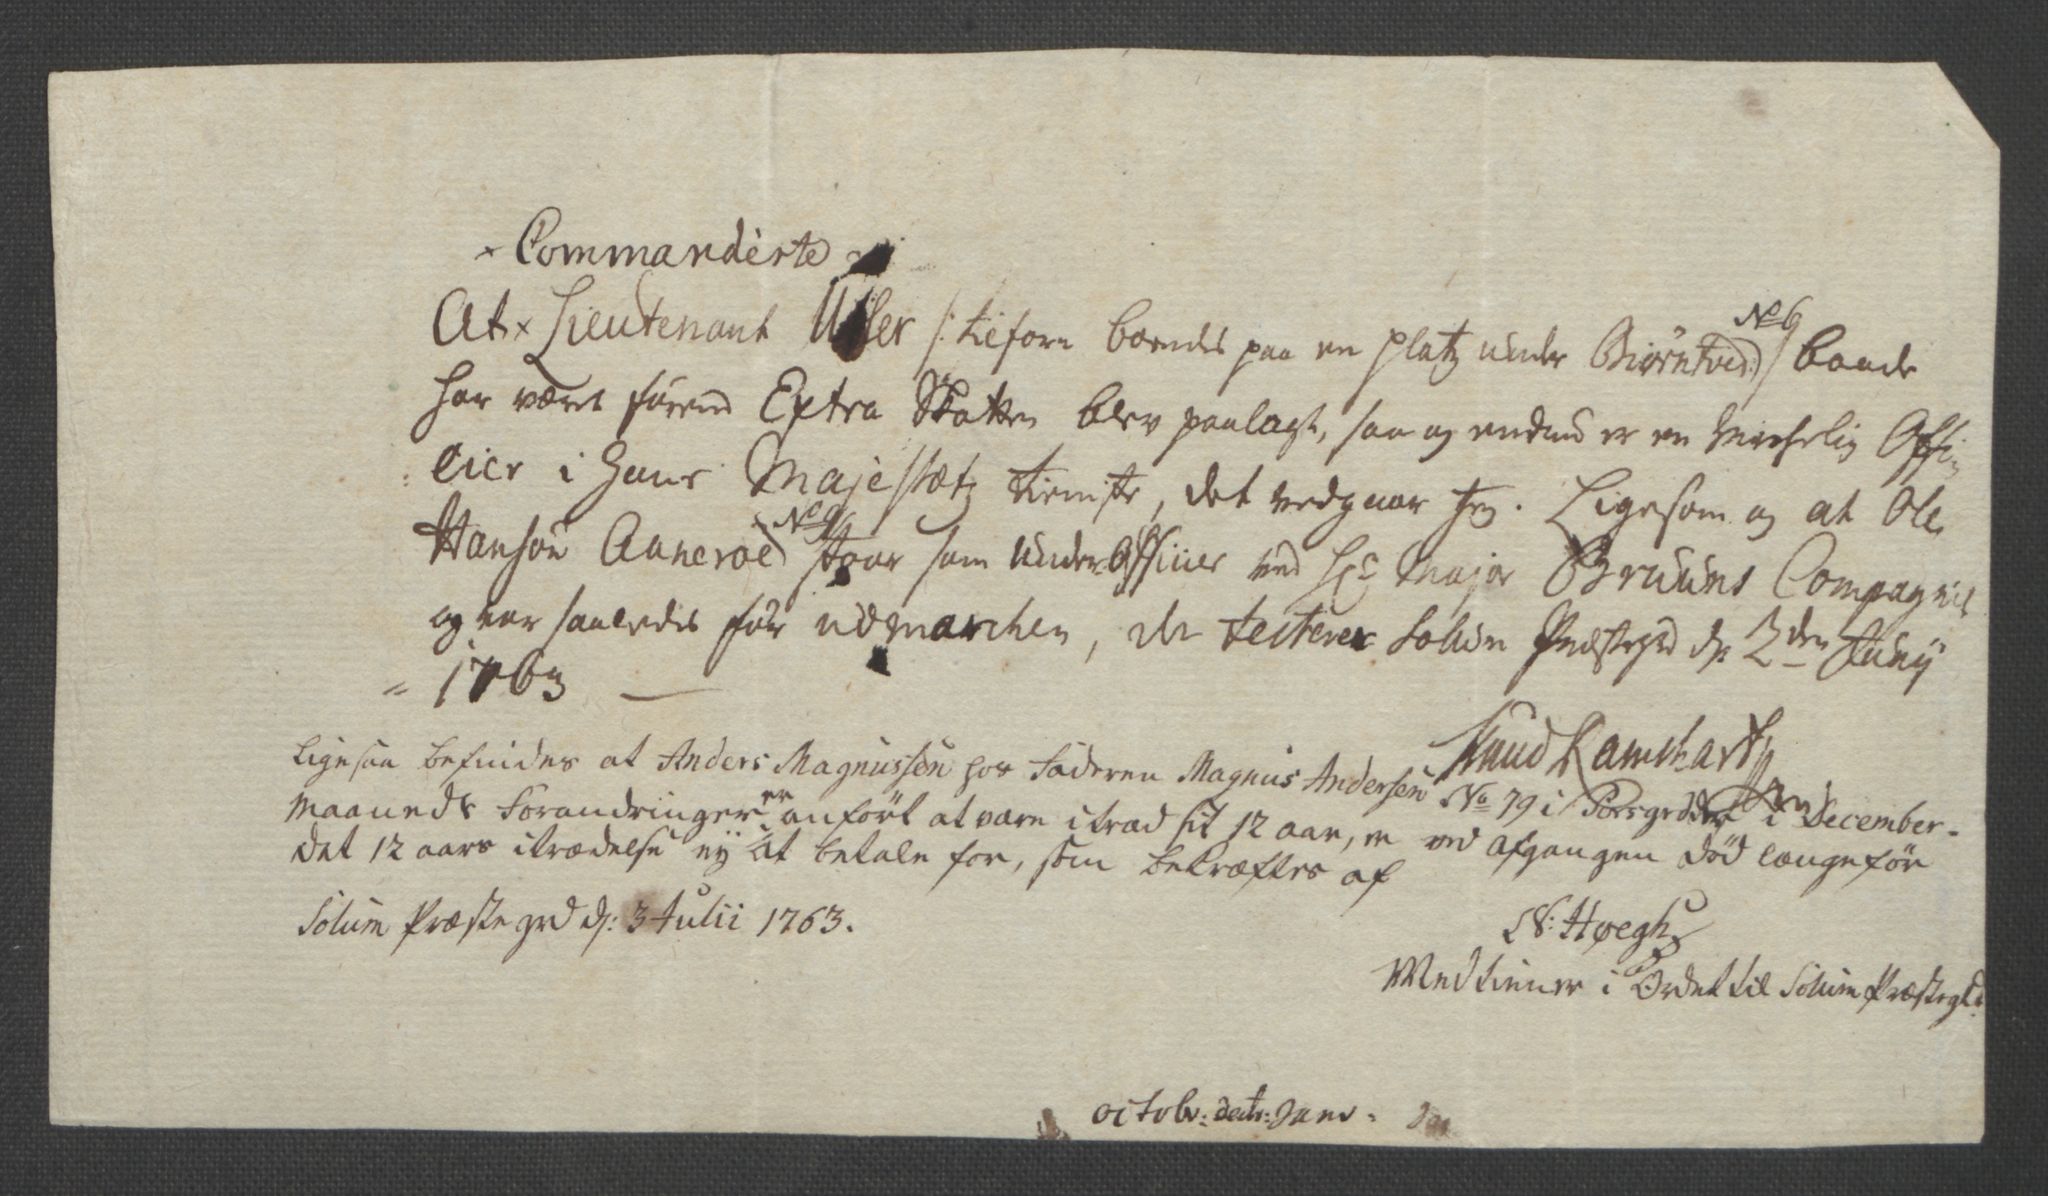 × Commanderte
At × Lieutenant /: tilforn boendes paa en platz under Biørntved No 6 :/ baade
har været førend Extra Skatten blev paalagt, saa og endnu er en virkelig Offi-
cier i Hans Majestætz tieniste, det vedgaar jeg. Ligesom og at Ole
Hansøn Aaneroed No 9 staar som under Officier ved Hr Major Bruuns Compagnie
og var saaledes før udmarchen, det testerer Solum Præstegrd d: 2den Juny
1763
Knud Ramshart
Ligesaa befindes at Anders Magnussen hos Faderen Magnus Andersen No 79 i Porsgrd i December-
Maaneds Forandringer er anført at være itræd sit 12 aar, er ved afgangen död længe för
det 12 aars itrædelse ey at betale for, som bekræftes af
Solum Præstegrd d: 3 Julii 1763.
N: Høegh
Medtiener i Ordet til Solum Præstegld.
octobr: decbr: Janv.